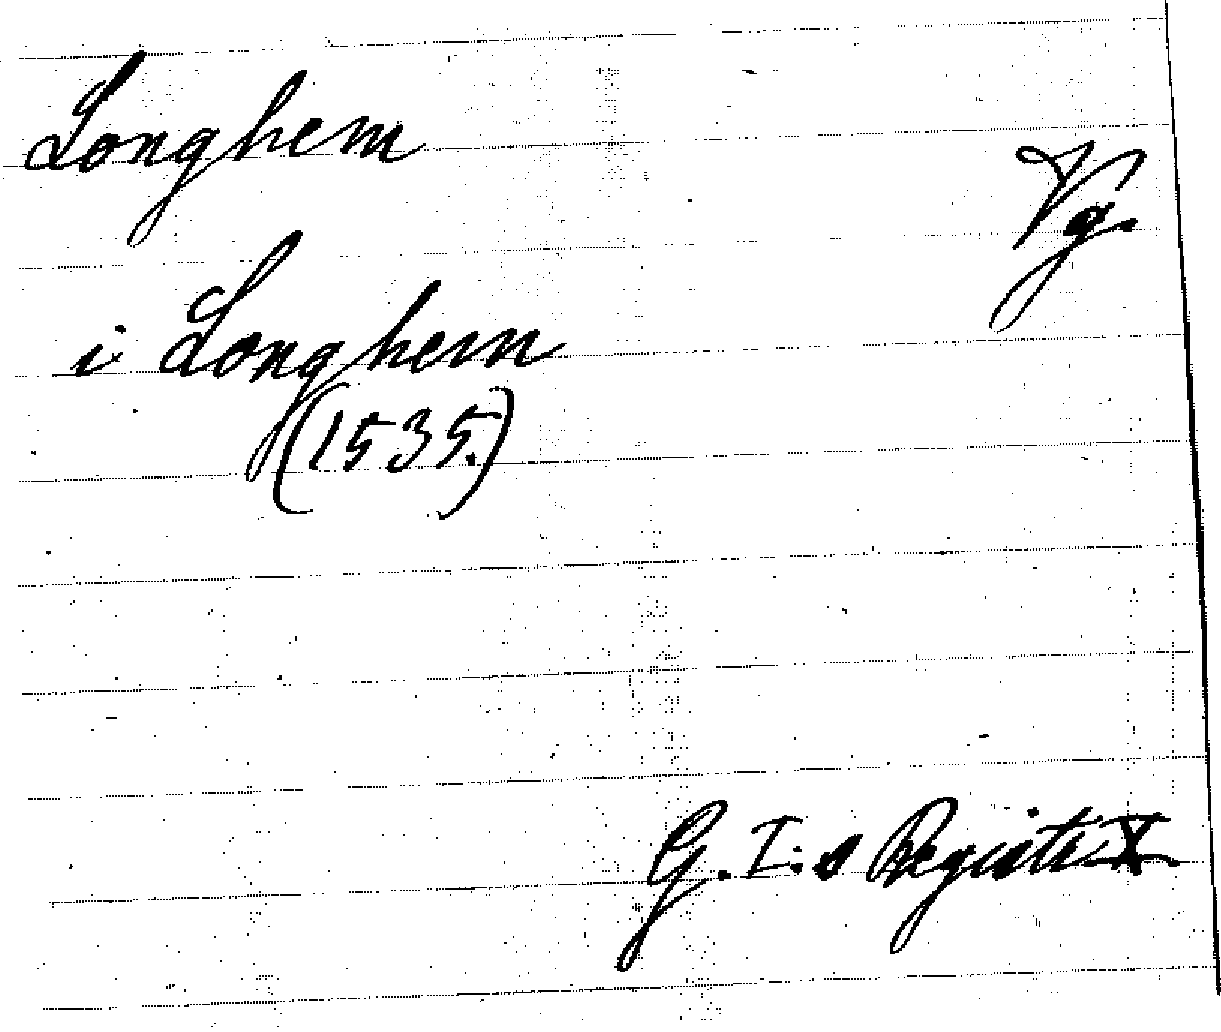 Longhem
Vg.
i Longhem
(1535.)
G. I:s Registr. X